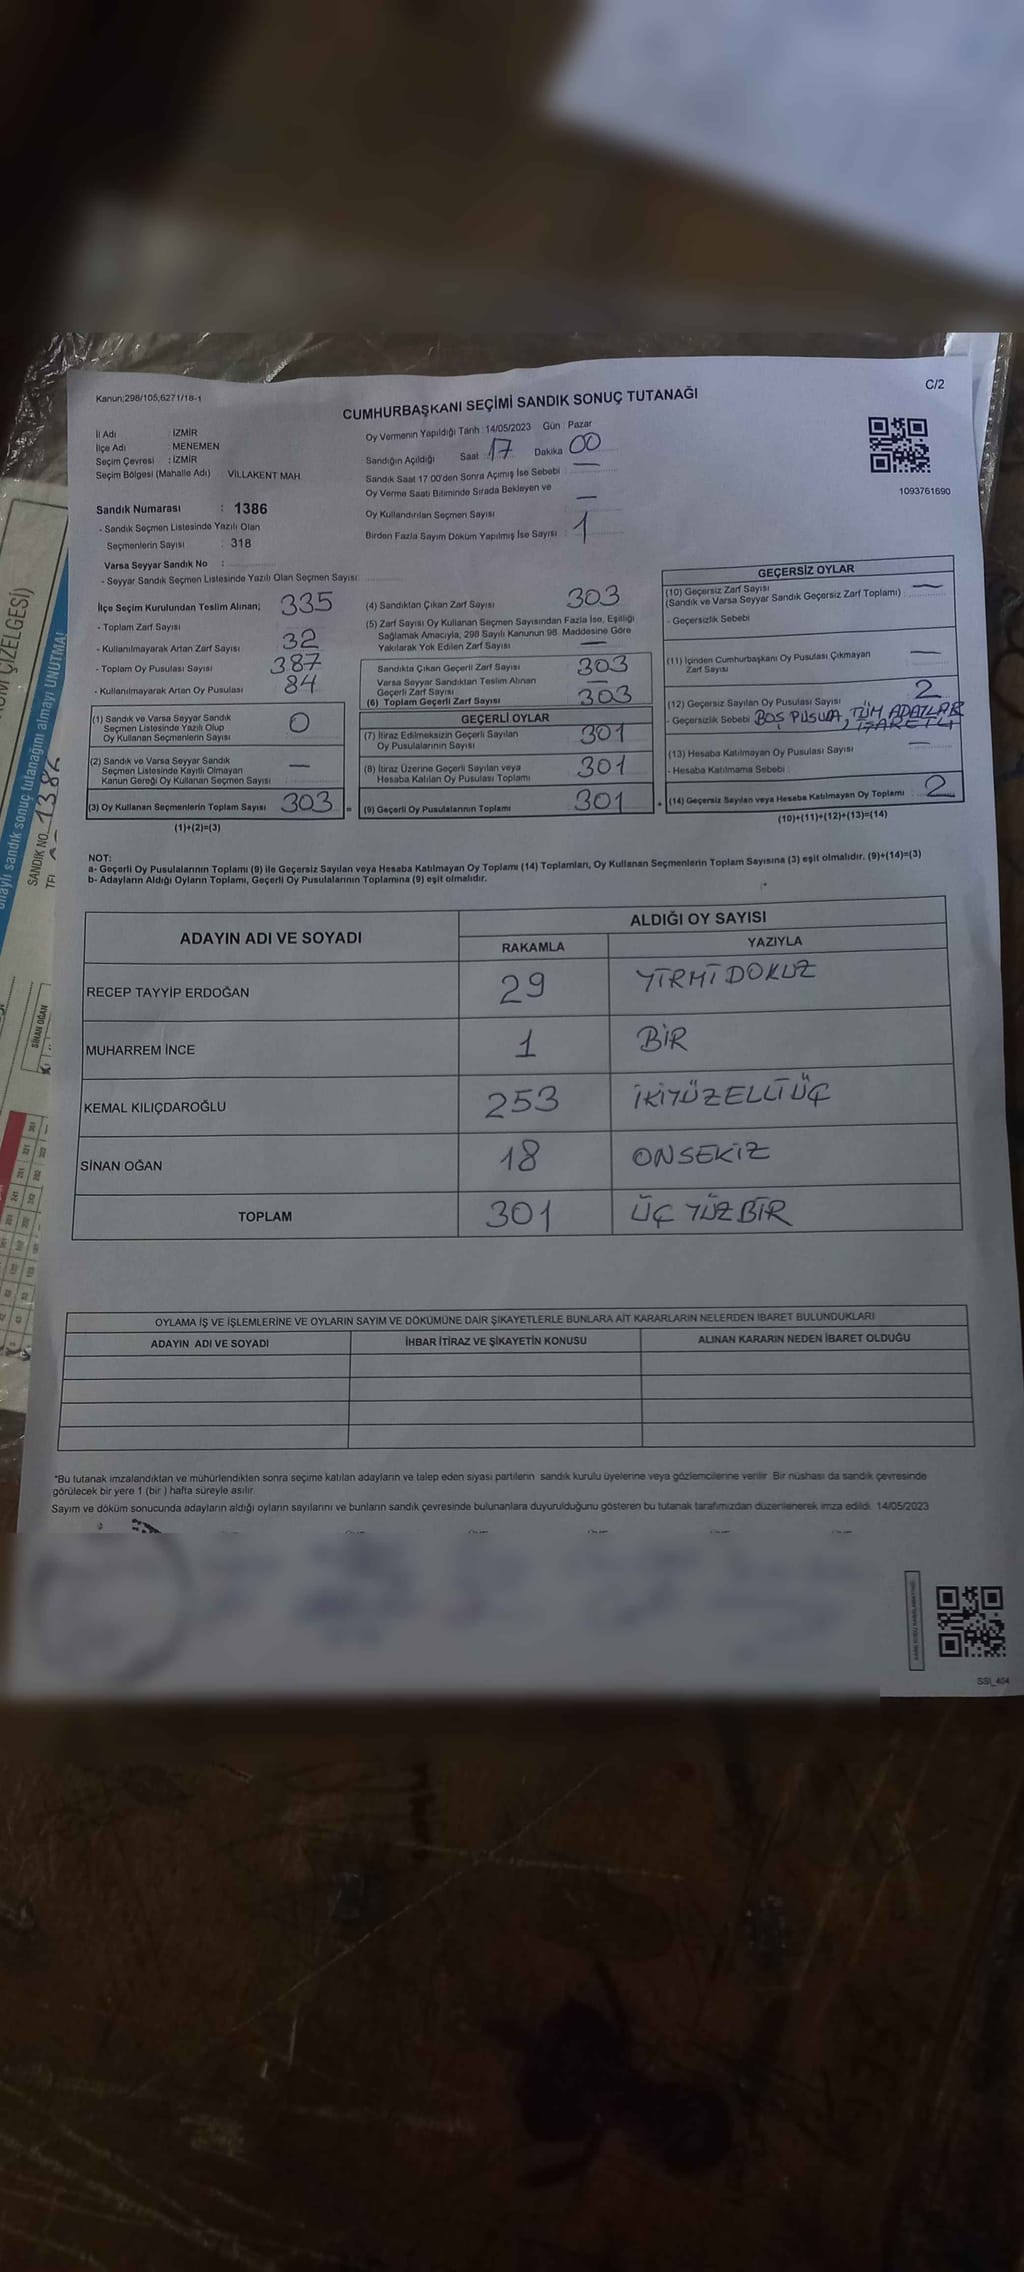 Kanun;298/105,6271/18-1
C/2
CUMHURBAŞKANI SEÇİMİ SANDIK SONUÇ TUTANAĞI
İl Adı : İZMİR
İlçe Adı : MENEMEN
Seçim Çevresi : İZMİR
Seçim Bölgesi (Mahalle Adı) VİLLAKENT MAH.
Oy Vermenin Yapıldığı Tarih :14/05/2023 Gün : Pazar
Sandığın Açıldığı Saat : 17 Dakika 00
Sandık Saat 17.00'den Sonra Açımış İse Sebebi : —
Oy Verme Saati Bitiminde Sırada Bekleyen ve
Oy Kullandırılan Seçmen Sayısı —
Birden Fazla Sayım Döküm Yapılmış İse Sayısı : 1
1093761690
Sandık Numarası : 1386
- Sandık Seçmen Listesinde Yazılı Olan
Seçmenlerin Sayısı : 318
Varsa Seyyar Sandık No :
- Seyyar Sandık Seçmen Listesinde Yazılı Olan Seçmen Sayısı:
İlçe Seçim Kurulundan Teslim Alınan; 335
- Toplam Zarf Sayısı
- Kullanılmayarak Artan Zarf Sayısı 32
- Toplam Oy Pusulası Sayısı 387
- Kullanılmayarak Artan Oy Pusulası 84
(1) Sandık ve Varsa Seyyar Sandık
Seçmen Listesinde Yazılı Olup
Oy Kullanan Seçmenlerin Sayısı 0
(2) Sandık ve Varsa Seyyar Sandık
Seçmen Listesinde Kayıtlı Olmayan
Kanun Gereği Oy Kullanan Seçmen Sayısı —
(3) Oy Kullanan Seçmenlerin Toplam Sayısı 303 =
(1)+(2)=(3)
(4) Sandıktan Çıkan Zarf Sayısı 303
(5) Zarf Sayısı Oy Kullanan Seçmen Sayısından Fazla İse, Eşitliği
Sağlamak Amacıyla, 298 Sayılı Kanunun 98. Maddesine Göre
Yakılarak Yok Edilen Zarf Sayısı —
Sandıkta Çıkan Geçerli Zarf Sayısı 303
Varsa Seyyar Sandıktan Teslim Alınan
Geçerli Zarf Sayısı —
(6) Toplam Geçerli Zarf Sayısı 303
GEÇERLİ OYLAR
(7) İtiraz Edilmeksizin Geçerli Sayılan
Oy Pusulalarının Sayısı 301
(8) İtiraz Üzerine Geçerli Sayılan veya
Hesaba Katılan Oy Pusulası Toplamı 301
(9) Geçerli Oy Pusulalarının Toplamı 301 +
GEÇERSİZ OYLAR
(10) Geçersiz Zarf Sayısı
(Sandık ve Varsa Seyyar Sandık Geçersiz Zarf Toplamı) : —
- Geçersizlik Sebebi
(11) İçinden Cumhurbaşkanı Oy Pusulası Çıkmayan
Zarf Sayısı —
(12) Geçersiz Sayılan Oy Pusulası Sayısı 2
- Geçersizlik Sebebi BOŞ PUSULA, TÜM ADAYLAR
İŞARETLİ
(13) Hesaba Katılmayan Oy Pusulası Sayısı —
- Hesaba Katılmama Sebebi :
(14) Geçersiz Sayılan veya Hesaba Katılmayan Oy Toplamı : 2
(10)+(11)+(12)+(13)=(14)
NOT:
a- Geçerli Oy Pusulalarının Toplamı (9) ile Geçersiz Sayılan veya Hesaba Katılmayan Oy Toplamı (14) Toplamları, Oy Kullanan Seçmenlerin Toplam Sayısına (3) eşit olmalıdır. (9)+(14)=(3)
b- Adayların Aldığı Oyların Toplamı, Geçerli Oy Pusulalarının Toplamına (9) eşit olmalıdır.
ADAYIN ADI VE SOYADI
ALDIĞI OY SAYISI
RAKAMLA YAZIYLA
RECEP TAYYİP ERDOĞAN 29 YİRMİ DOKUZ
MUHARREM İNCE 1 BİR
KEMAL KILIÇDAROĞLU 253 İKİYÜZELLİ ÜÇ
SİNAN OĞAN 18 ONSEKİZ
TOPLAM 301 ÜÇ YÜZ BİR
OYLAMA İŞ VE İŞLEMLERİNE VE OYLARIN SAYIM VE DÖKÜMÜNE DAİR ŞİKAYETLERLE BUNLARA AİT KARARLARIN NELERDEN İBARET BULUNDUKLARI
ADAYIN ADI VE SOYADI İHBAR İTİRAZ VE ŞİKAYETİN KONUSU ALINAN KARARIN NEDEN İBARET OLDUĞU
*Bu tutanak imzalandıktan ve mühürlendikten sonra seçime katılan adayların ve talep eden siyasi partilerin sandık kurulu üyelerine veya gözlemcilerine verilir. Bir nüshası da sandık çevresinde
görülecek bir yere 1 (bir ) hafta süreyle asılır.
Sayım ve döküm sonucunda adayların aldığı oyların sayılarını ve bunların sandık çevresinde bulunanlara duyurulduğunu gösteren bu tutanak tarafımızdan düzenlenerek imza edildi. 14/05/2023
SSI_404
ÇİZELGESİ)
onaylı sandık sonuç tutanağını almayı UNUTMA!
SANDIK NO 1386
SİNAN OĞAN